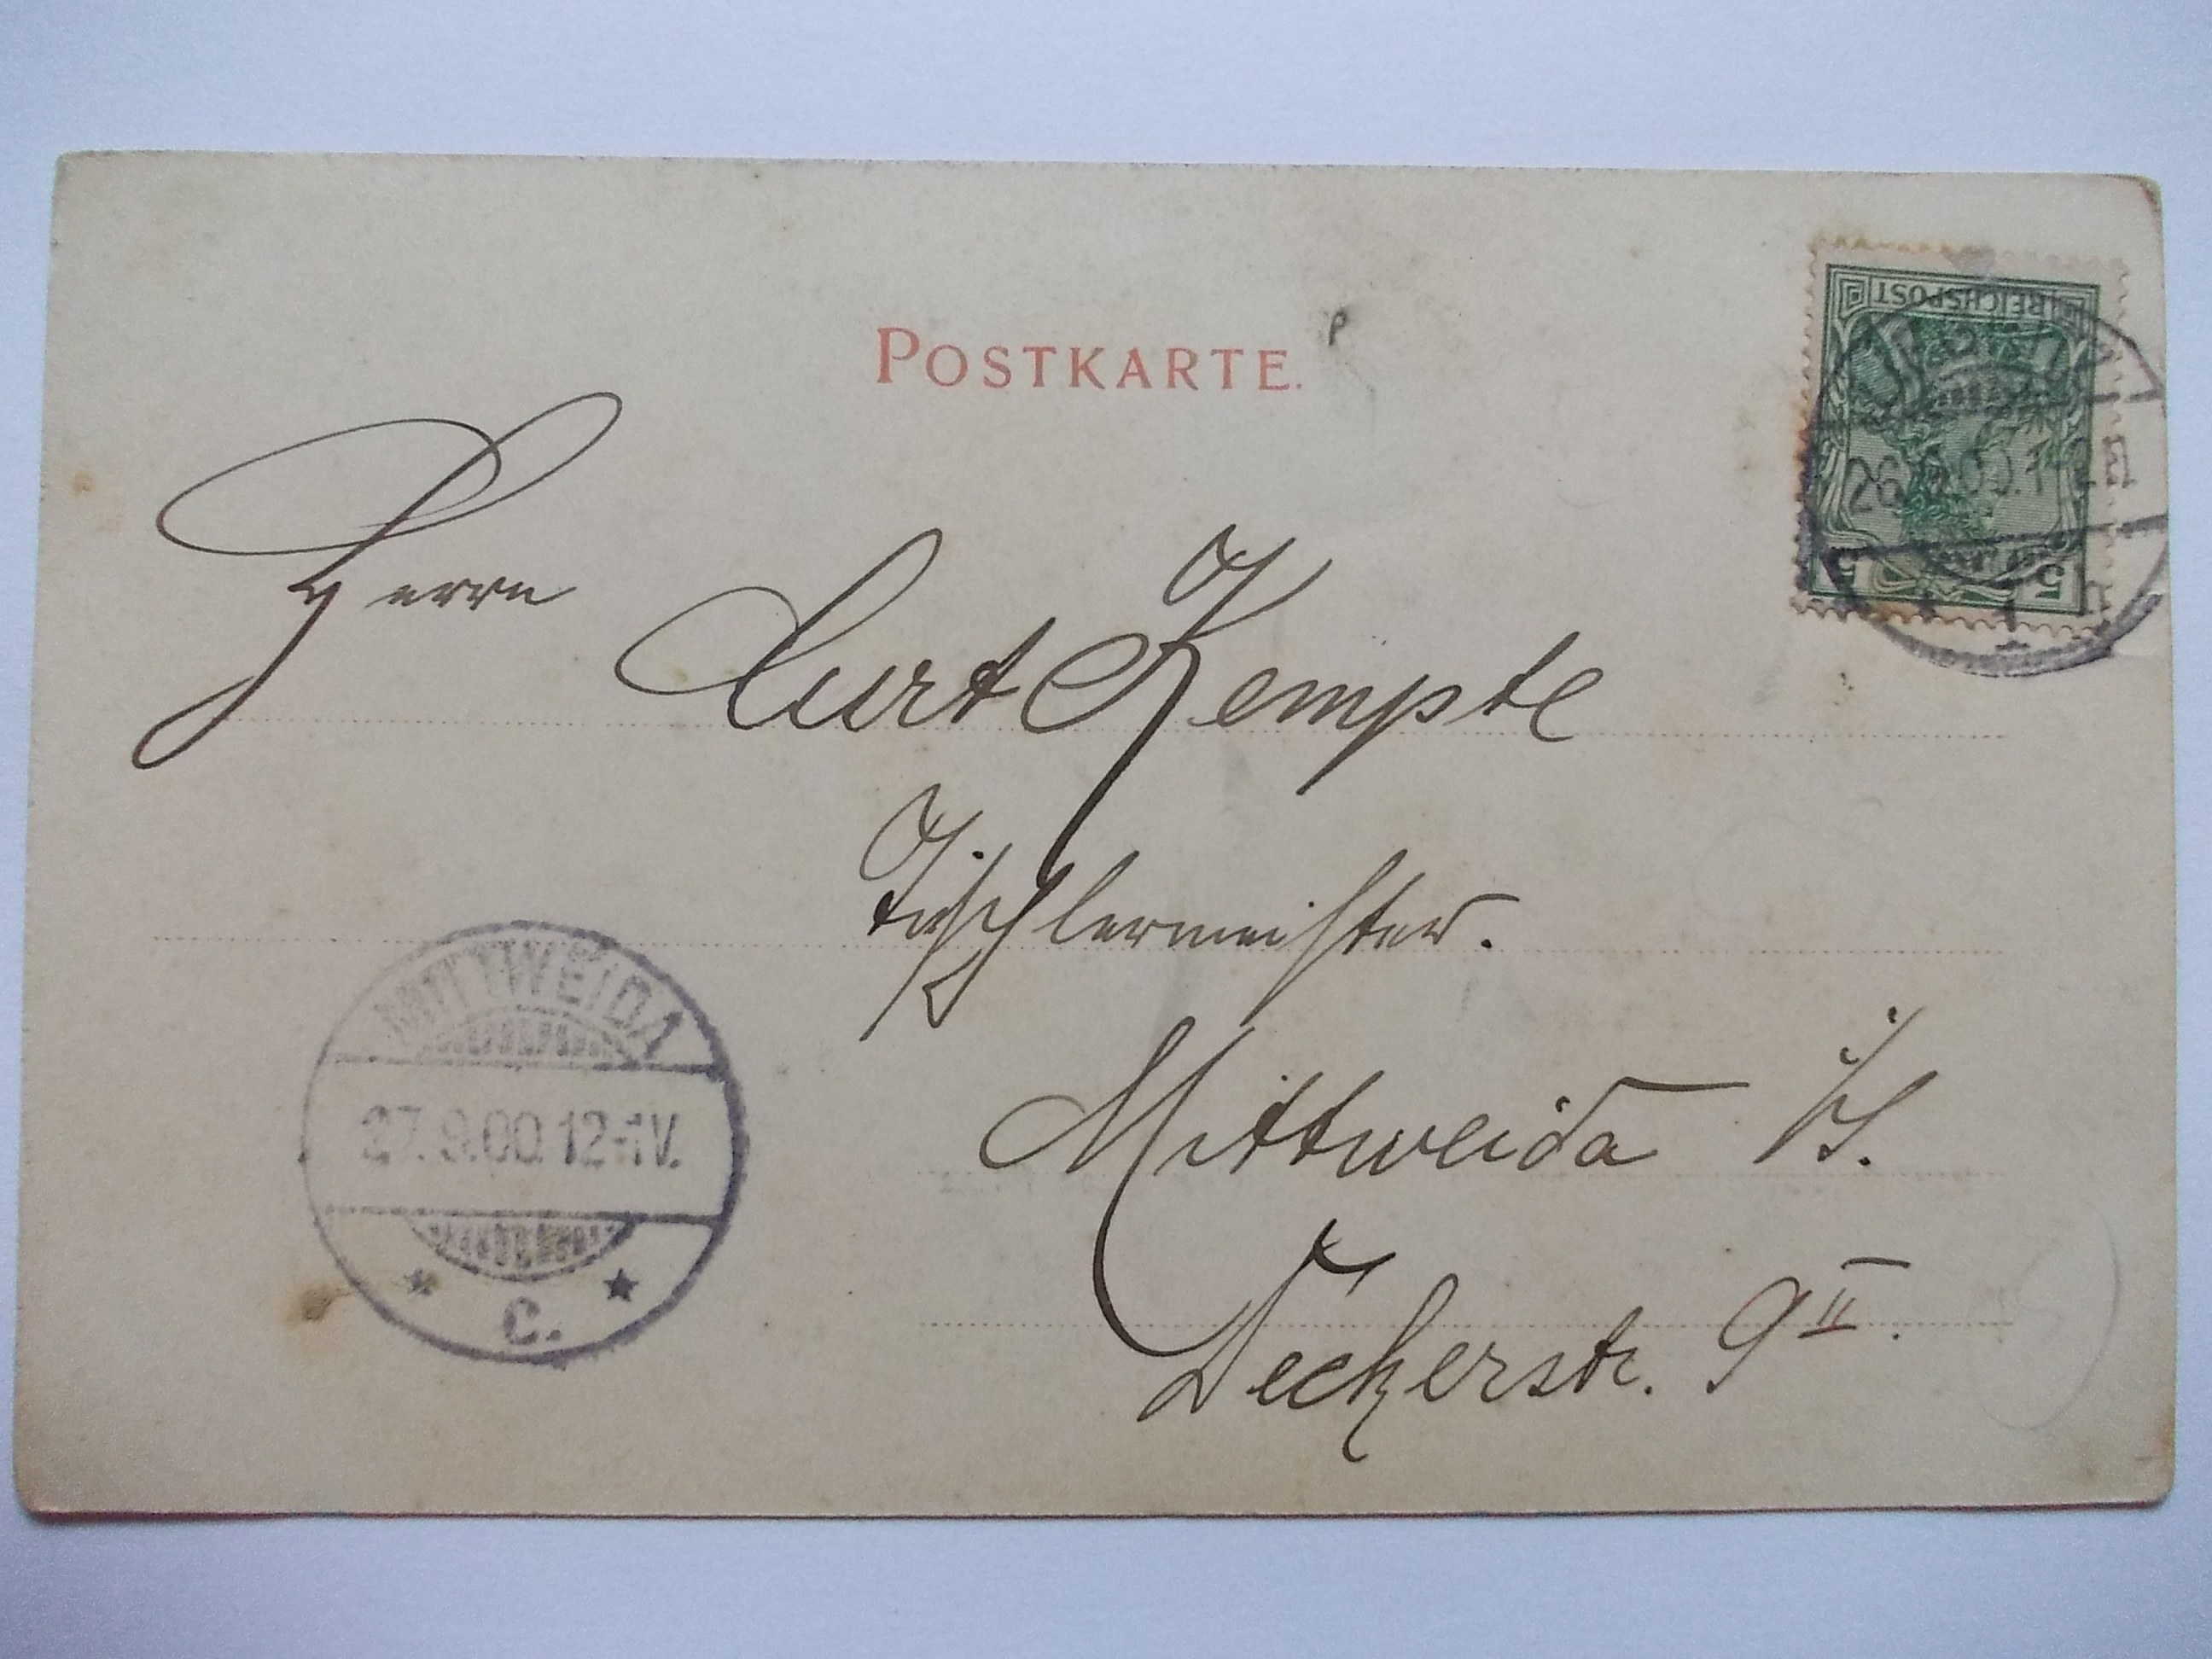 POSTKARTE.
REICHSPOST
5 5
Herrn
Curt Kempte
Tischlermeister.
Mittweida i/S.
Deckerstr. 9 II.
MITTWEIDA
27.9.00.12-1V.
C.